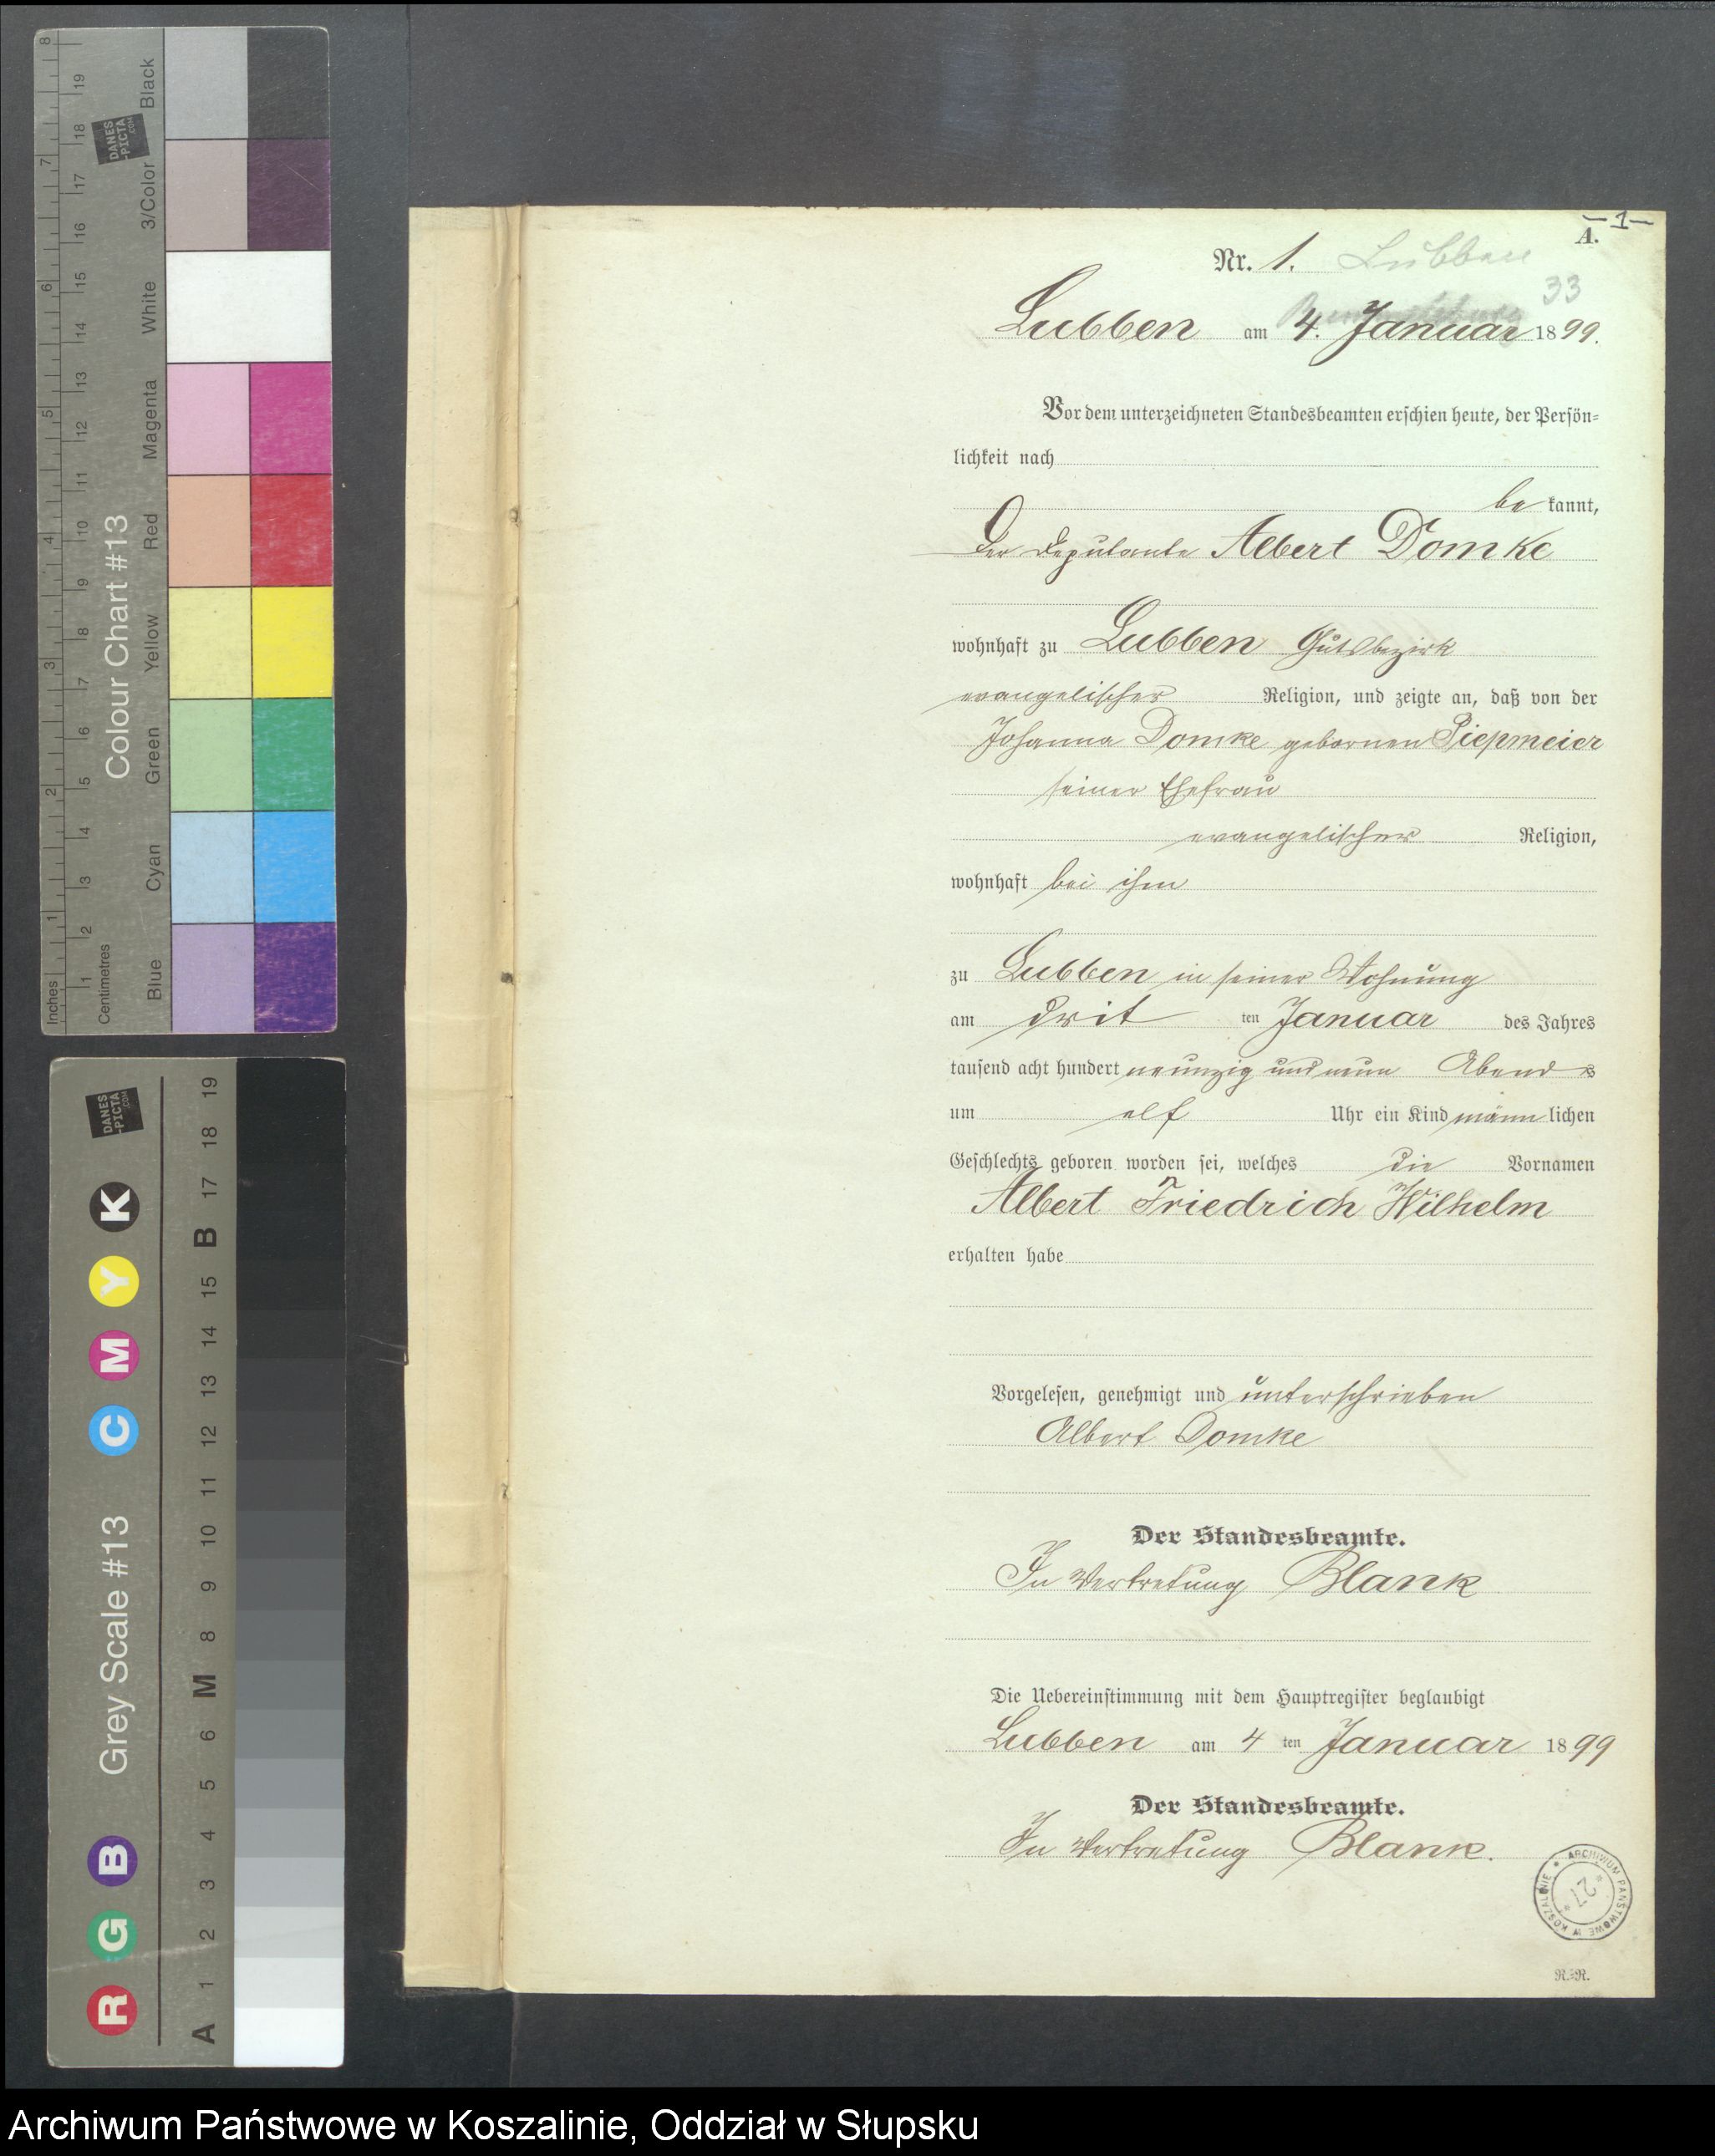 — 1 —
A.
Nr. 1. Lubben
33
Lubben am 4. Januar 1899.
Vor dem unterzeichneten Standesbeamten erschien heute, der Persön=
lichkeit nach
be kannt,
Der Deputante Albert Domke
wohnhaft zu Lubben Gutsbezirk
evangelischer Religion, und zeigte an, daß von der
Johanna Domke gebornen Piepmeier
seiner Ehefrau
evangelischer Religion,
wohnhaft bei ihm
zu Lubben in seiner Wohnung
am drit ten Januar des Jahres
tausend acht hundert neunzig und neun Abends
um elf Uhr ein Kind männlichen
Geschlechts geboren worden sei, welches die Vornamen
Albert Friedrich Wilhelm
erhalten habe
Vorgelesen, genehmigt und unterschrieben
Albert Domke
Der Standesbeamte.
In Vertretung Blank
Die Uebereinstimmung mit dem Hauptregister beglaubigt
Lubben am 4 ten Januar 1899
Der Standesbeamte.
In Vertretung Blank.
ARCHIWUM PAŃSTWOWE W KOSZALINIE
* 27 *
Colour Chart #13
Blue Cyan Green Yellow Red Magenta White 3/Color Black
Inches 1 2 3 4 5 6 7 8
Centimetres 1 2 3 4 5 6 7 8 9 10 11 12 13 14 15 16 17 18 19
DANES
-PICTA
.COM
Grey Scale #13
R G B C M Y K
A 1 2 3 4 5 6 M 8 9 10 11 12 13 14 15 B 17 18 19
DANES
-PICTA
.COM
Archiwum Państwowe w Koszalinie, Oddział w Słupsku